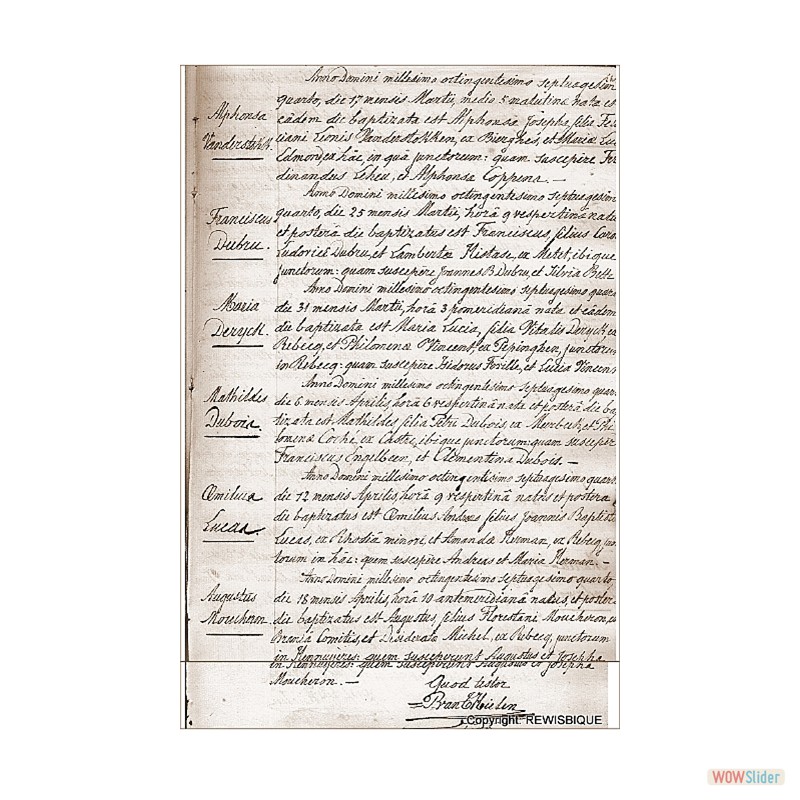 Anno Domini millesimo octingentesimo septuagesimo
quarto, die 17 mensis Martii, medio 5 matutina nata es
Alphonsa
eâdem die baptizata est Alphonsa Josepha, filia Feli
Vanderstokk.
ciani Leonis Vanderstokken, ex Bierghes, et Mariæ Lu
Edmond, ex hâc, in quâ junctorum: quam suscepêre Fer
dinandus Leheu, et Alphonsa Coppens. —
Anno Domini millesimo octingentesimo septuagesim
Franciscus
quarto, die 25 mensis Martii, horâ 9 vespertinâ natu
et posterâ die baptizatus est Franciscus, filius Caro
Dubru.
Ludovici Dubru, et Lambertæ Histase, ex Metet, ibique
junctorum: quam suscepêre Joannes B. Dubru, et Silvia
Anno Domini millesimo octingentesimo septuagesimo quart
Maria
die 31 mensis Martii, horâ 3 pomeridianâ nata et eâdem
Deryck.
die baptizata est Maria Lucia, filia Vitalis Deryck ex
Rebecq, et Philomenæ Vincent, ex Pepinghen, junctorum
in Rebecq: quam suscepêre Isidorus Foville, et Lucia Vincent
Anno Domini millesimo octingentesimo septuagesimo quar
Mathildes
die 6 mensis Aprilis, horâ 6 vespertinâ nata et posterâ die bap
Dubois.
tizata est Mathildes filia Petri Dubois ex Merbech, et Phi
lomenæ Coché, ex Castre, ibique junctorum: quam suscepêr
Franciscus Engelbeen, et Clementina Dubois. —
Anno Domini millesimo octingentesimo septuagesimo quarto
Œmilius
die 12 mensis Aprilis, horâ 9 vespertinâ natus et posterâ
Lucas.
die baptizatus est Œmilius Andreas filius Joannis Baptistæ
Lucas, ex Rhodiâ minori, et Amanda Herman, ex Rebecq, junc
torum in hâc: quem suscepêre Andreas et Maria Herman. —
Anno Domini millesimo octingentesimo septuagesimo quarto
Augustus
die 18 mensis Aprilis, horâ 10 antemeridianâ natus, et posterâ
Moucheron.
die baptizatus est Augustus, filius Florestani Moucheron, ex
Braniâ Comitis, et Desiderata Michel, ex Rebecq, junctorum
in Hennuyères: quem susceperunt Augustus et Josepha
in Hennuyères: quem susceperunt Augustus et Josepha
Moucheron. —
Quod testor
Copyright: REWISBIQUE
WOWSlider